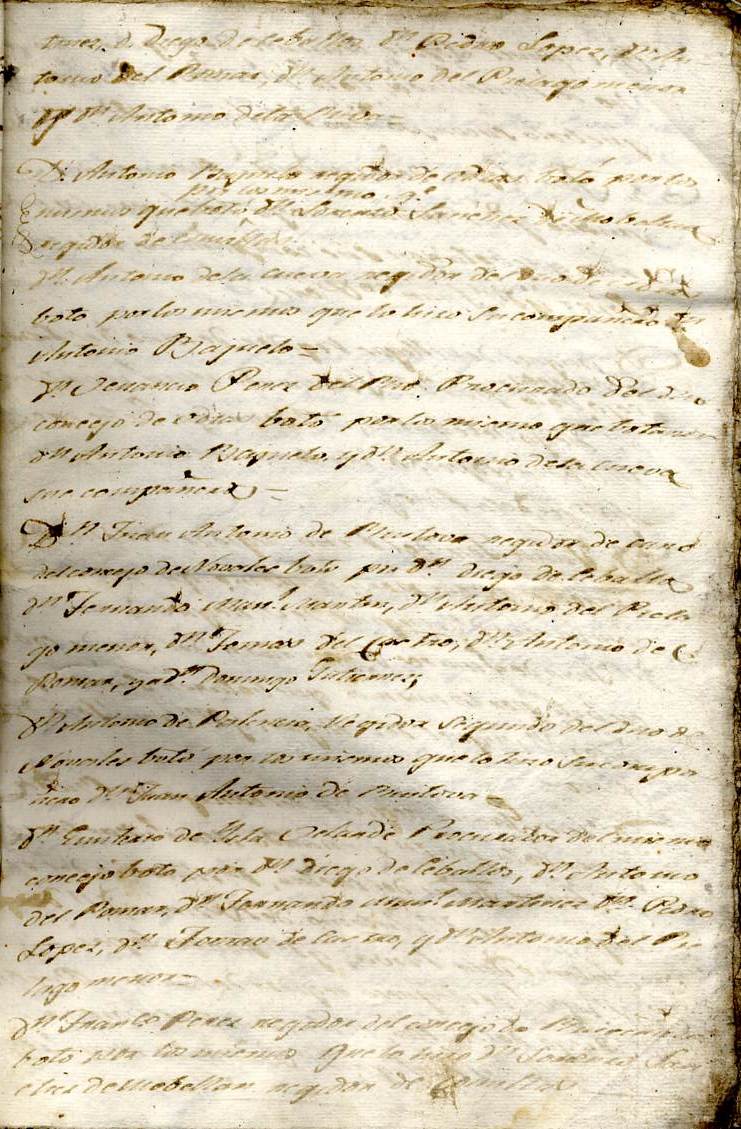 tinez, d. Diego de Ceballos, dn Pedro Lopez, dn An
tonio del Pomar, dn Antonio del Pielago menor
y dn Antonio dela
Dn Antonio regidor de botó por los
por los mismo, qe
mismos que botó dn Lorenzo Sanchez de Mobellan
regidor de Comillas
dn Antonio dela Cueva regidor del dho de
botó por los mismos que lo hizo su compañero dn
Antonio Baquelo =
dn Venancio Perez del Rio Procurador del dho
concejo de botó por los mismo que botaron
dn Antonio Baquelo, y dn Antonio dela Cueva
sus compañeros =
Dn Juan Antonio de Bustova regidor de cano
del concejo de Novales botó por dn Diego de Ceballos
dn Fernando Manl Martin, dn Antonio del Piela
go menor, dn Tomas del Castro, dn Antonio de
Pomar, y a dn Domingo Gutierrez,
dn Antonio de Palencia, regidor segundo del dho de
Novales botó por los mismos que lo hizo su compa
ñero dn Juan Antonio de Bustova =
dn Emeterio de Isla Procurador del mismo
concejo botó por dn Diego de Ceballos, dn Antonio
del Pomar, dn Fernando Manl Martinez dn Pedro
Lopez, dn Tomas de Castro, y dn Antonio del Pie
lago menor =
dn Franco Perez regidor del concejo de
botó por los mismos que lo hizo dn Lorenzo San
chez de Mobellan regidor de Comillas